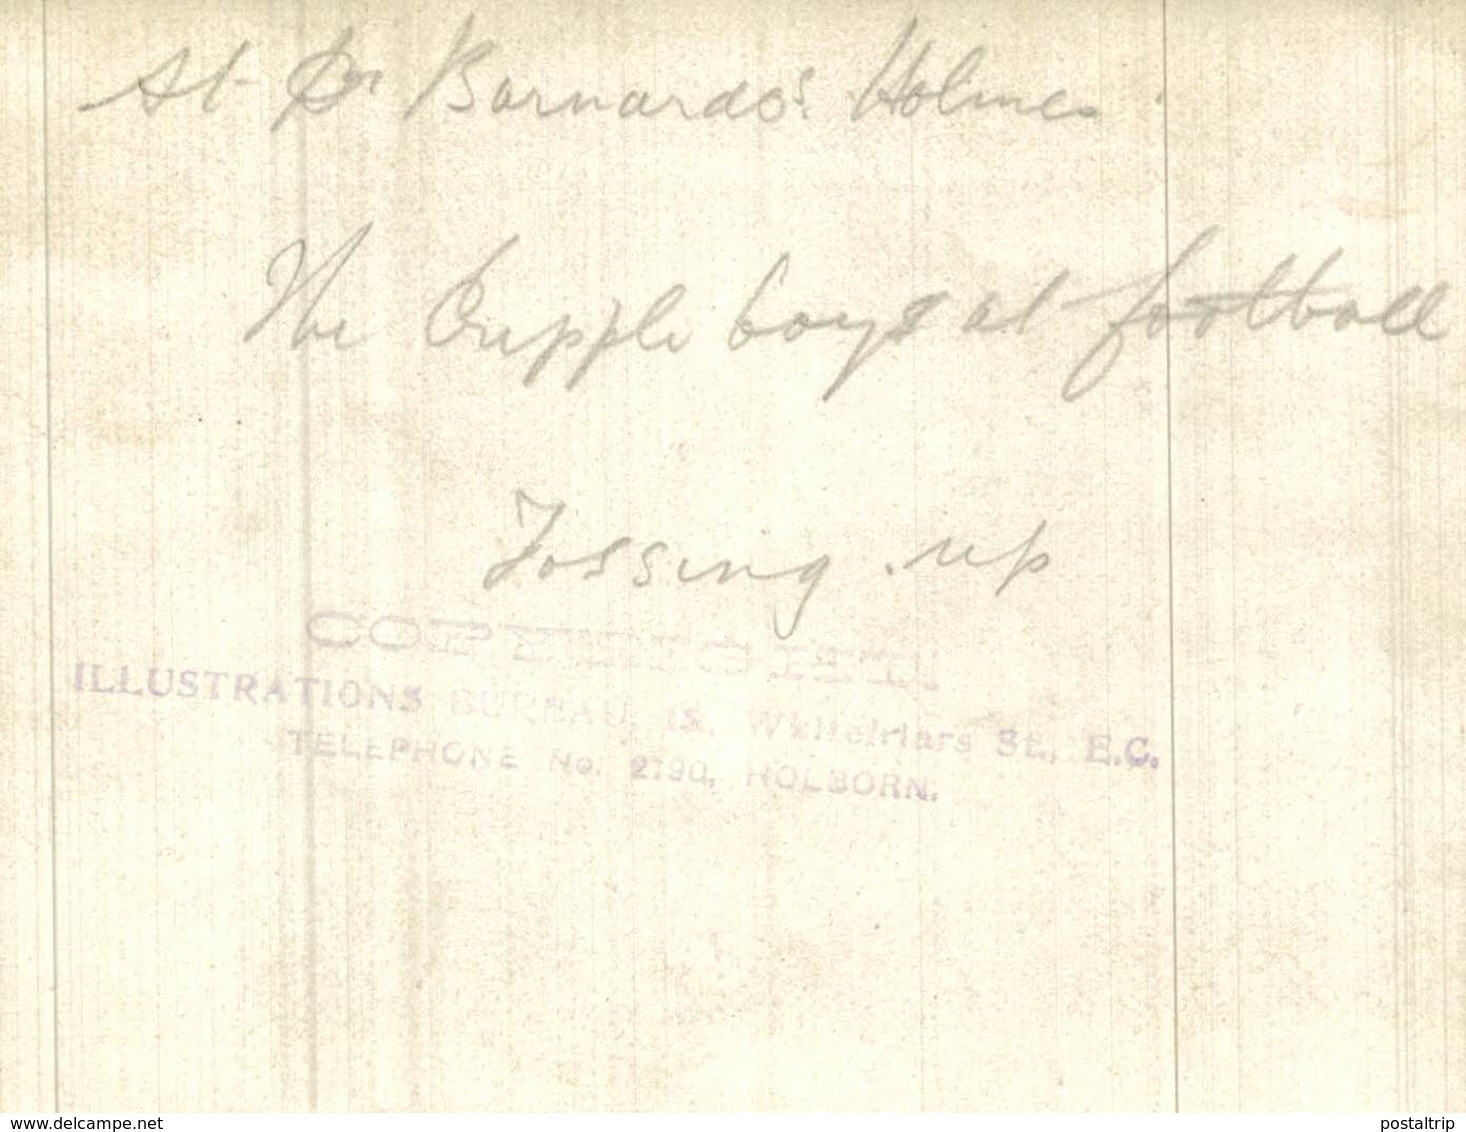 At Dr Barnardo's Holmes
The Cripple boys at football
Tossing up
COPYRIGHT.
ILLUSTRATIONS BUREAU, 15, Whitefriars St., E.C.
TELEPHONE No. 2190, HOLBORN.
www.delcampe.net
postaltrip